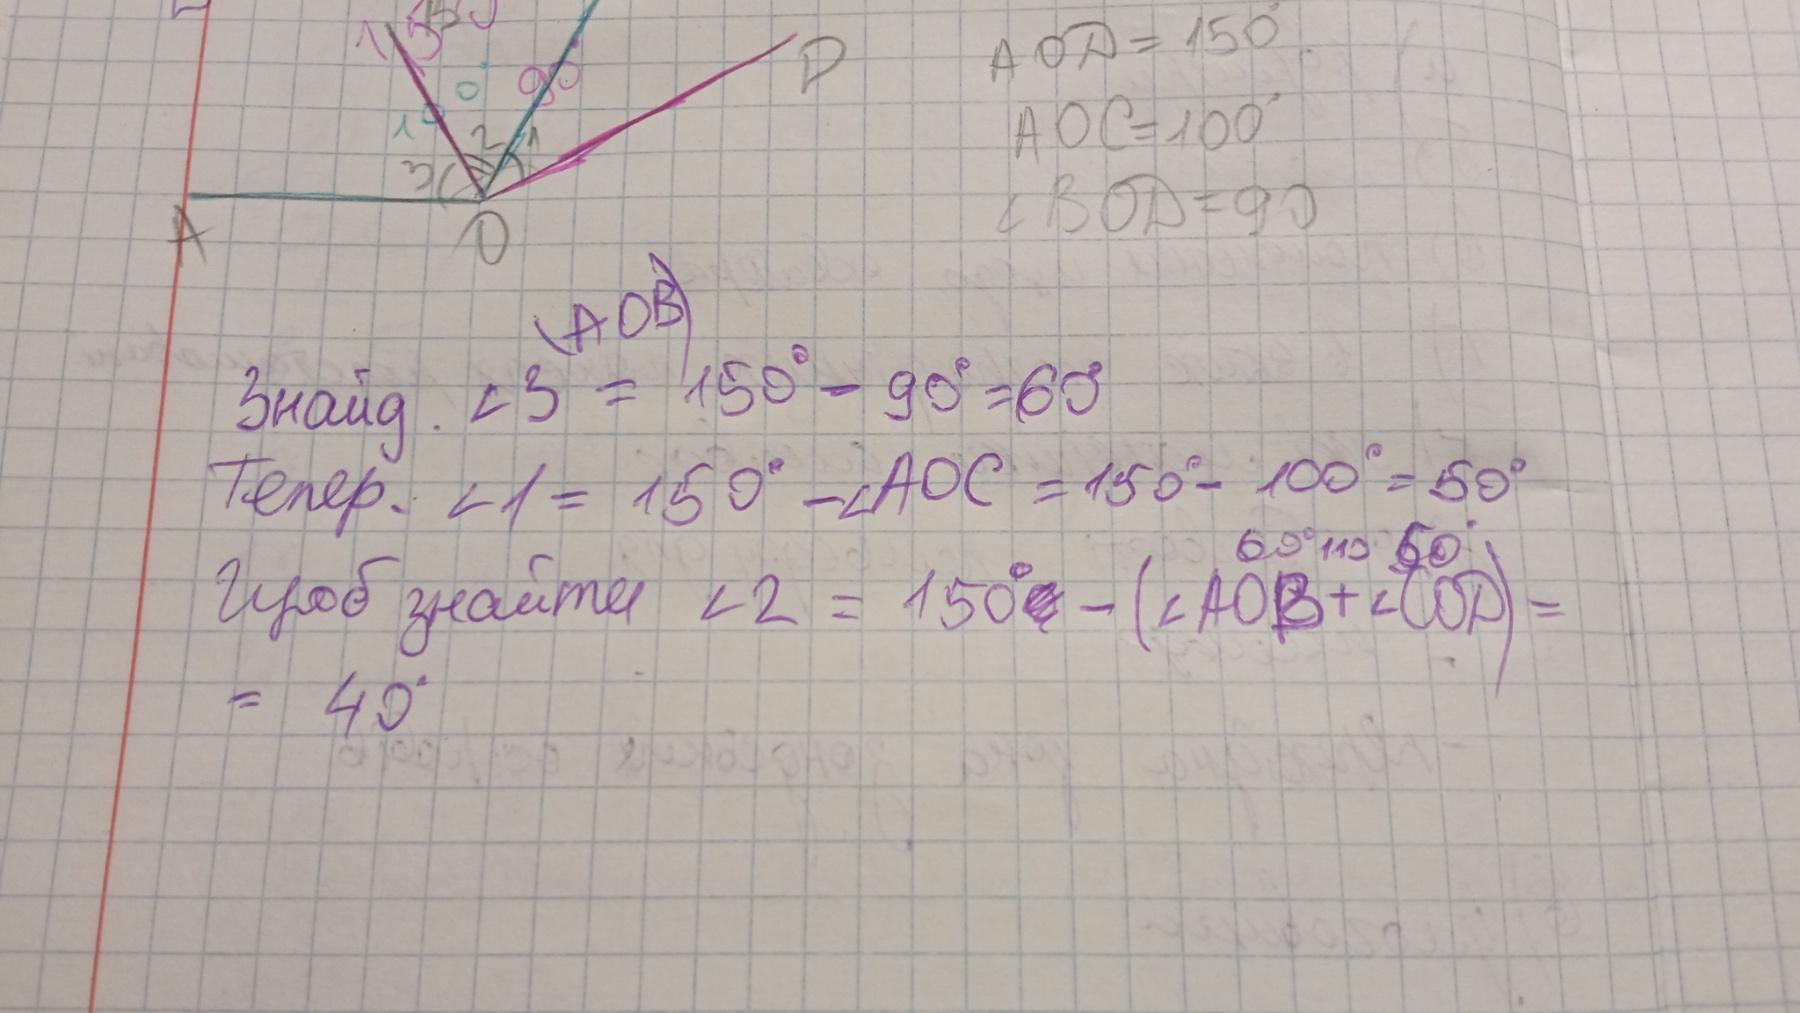 D
90°
100°
2
1
3
A
O
AOD = 150°
AOC = 100°
∠BOD = 90
(AOB)
Знайд. ∠3 = 150° - 90° = 60°
Тепер. ∠1 = 150° - ∠AOC = 150° - 100° = 50°
60° 110 50°
Щоб знайти ∠2 = 150° - (∠AOB + ∠COD) =
= 40°